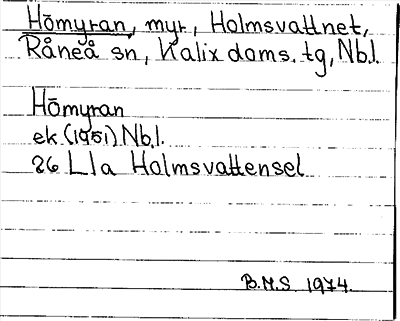 Hömyran, myr, Holmsvattnet,
Råneå sn, Kalix doms. tg, Nb.l.
Hömyran
ek. (1951) Nb.l.
26 L1a Holmsvattensel
B.M.S. 1974.